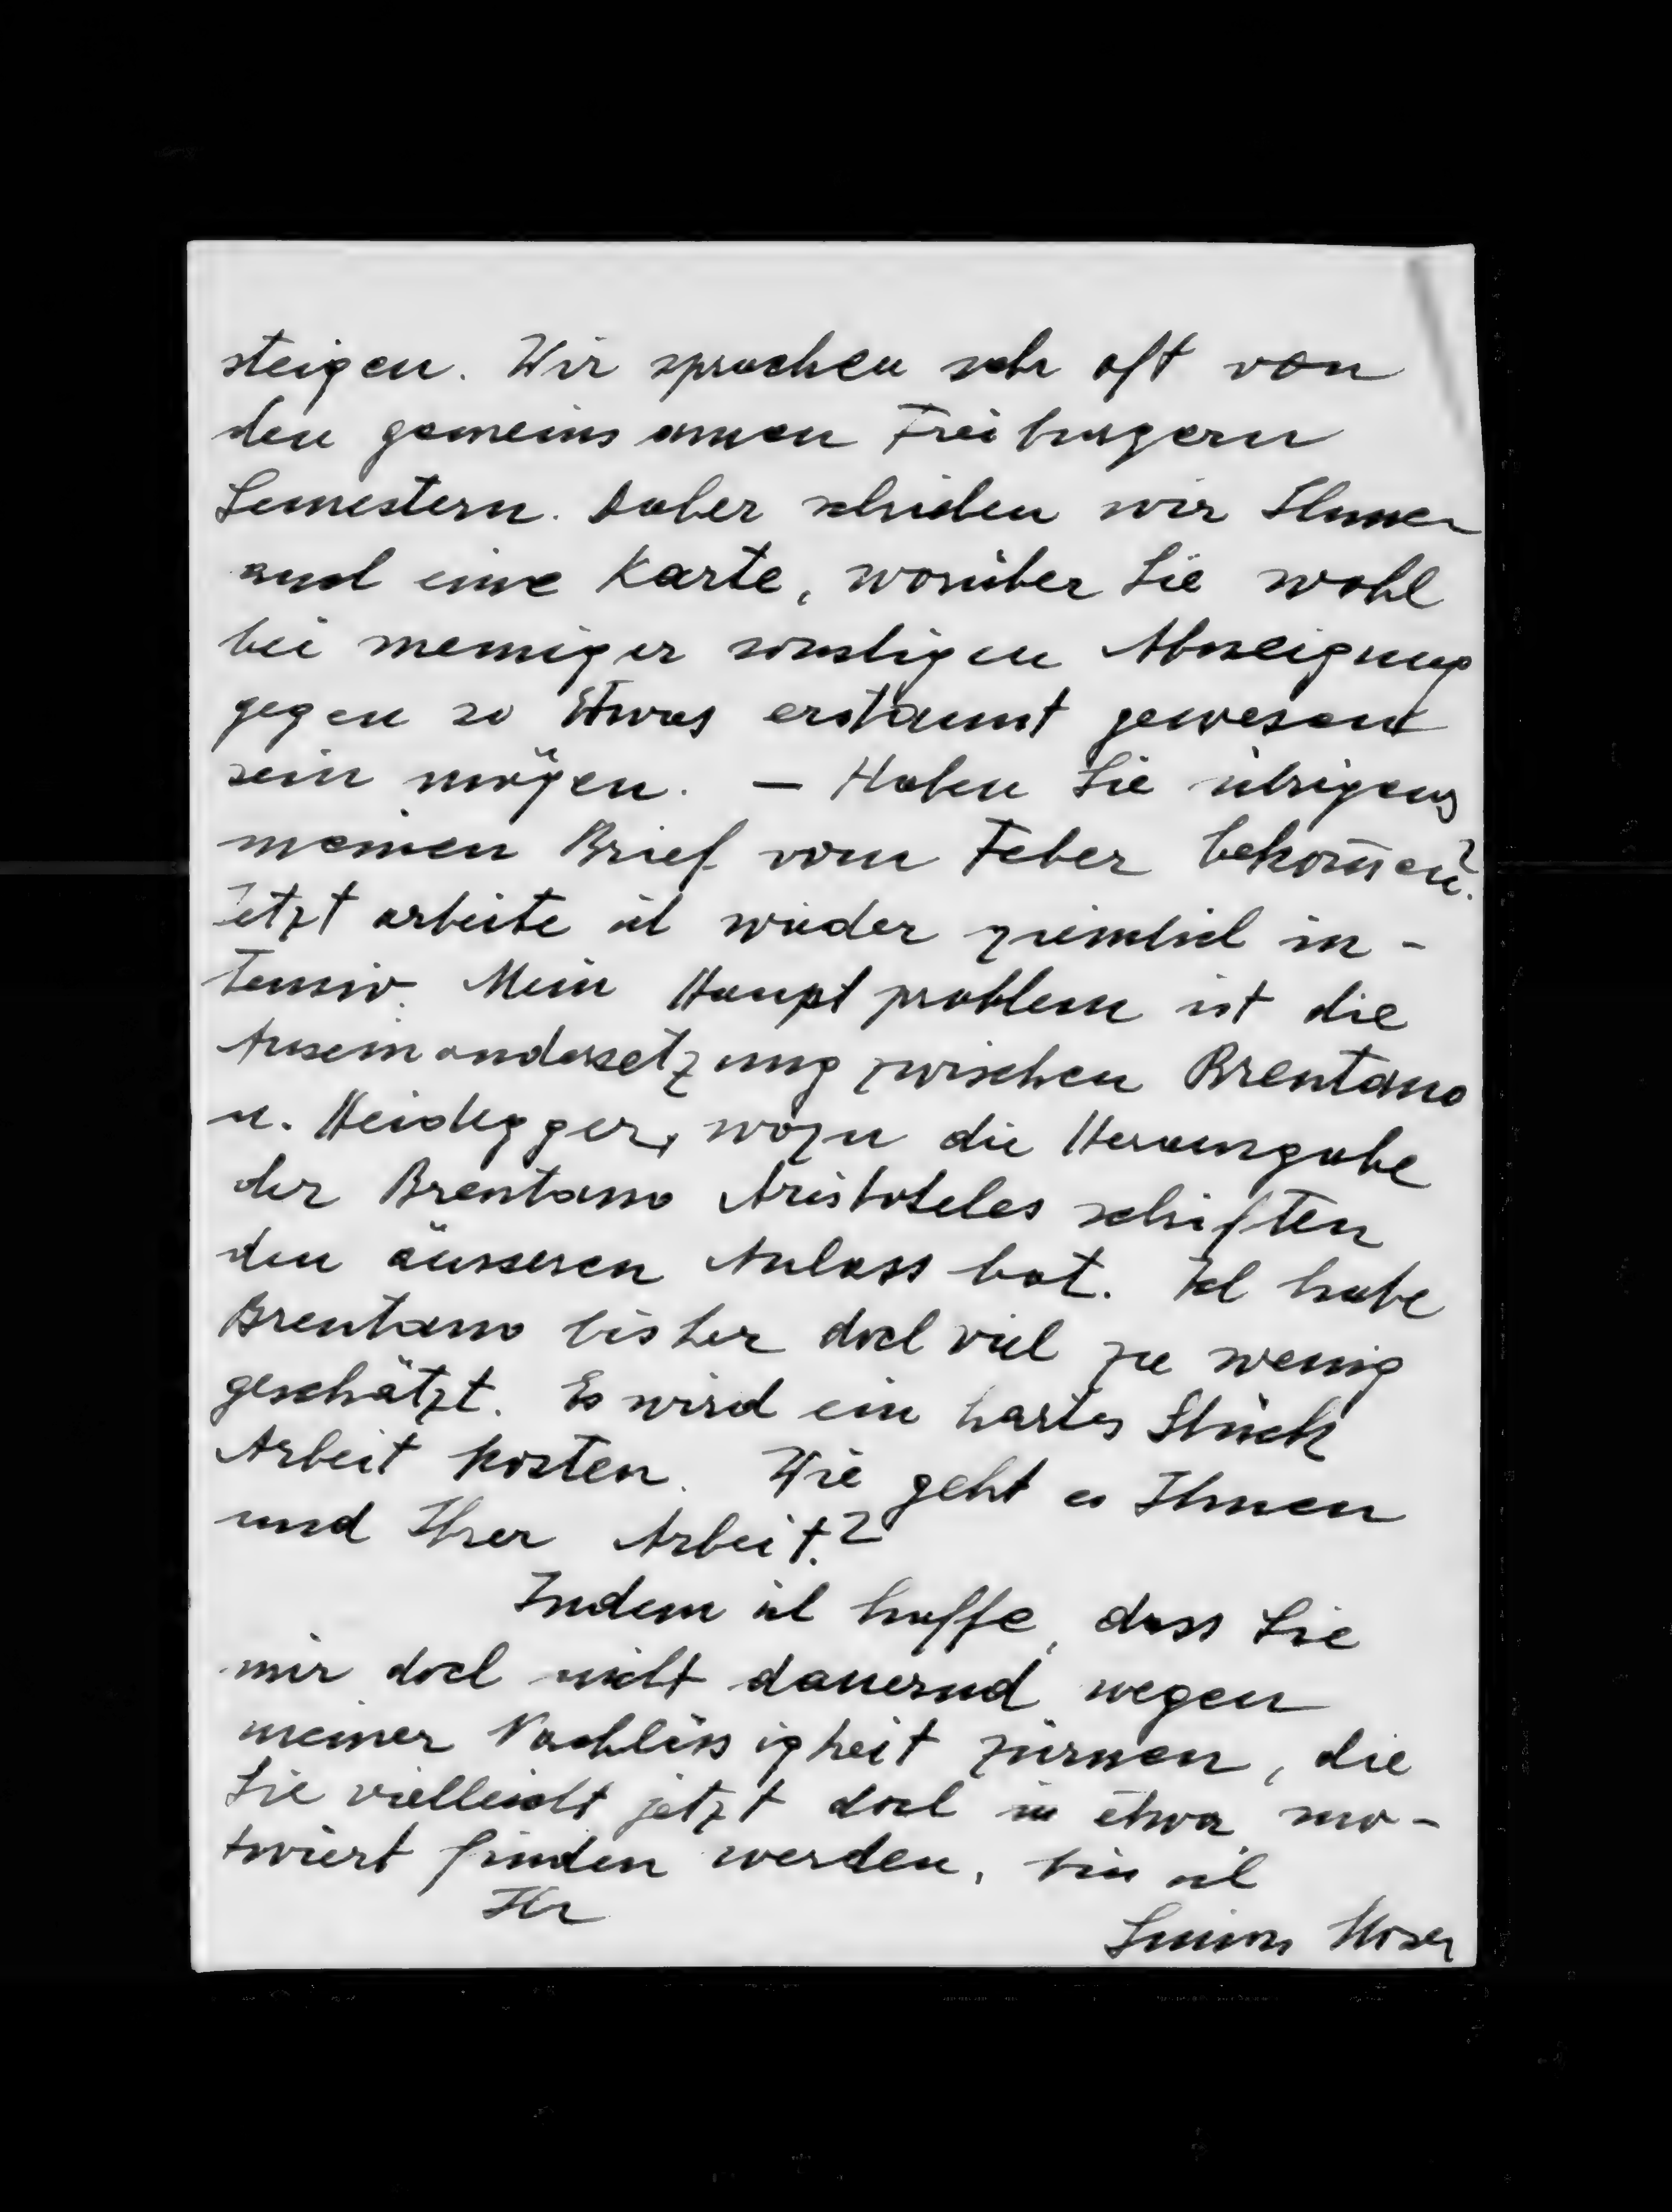 steigen. Wir sprachen sehr oft von
den gemeinsamen Freiburgern
Semestern. Daher schrieben wir Ihnen
auch eine Karte, worüber Sie wohl
bei meiniger sonstigen Abneigung
gegen so Etwas erstaunt gewesen
sein mögen. — Haben Sie übrigens
meinen Brief vom Feber bekom̄en?
Jetzt arbeite ich wieder ziemlich in-
tensiv. Mein Hauptproblem ist die
Auseinandersetzung zwischen Brentano
u. Heidegger, wozu die Herausgabe
der Brentano Aristoteles schriften
den äusseren Anlass bot. Ich habe
Brentano bisher doch viel zu wenig
geschätzt. Es wird ein hartes Stück
Arbeit kosten. Wie geht es Ihnen
und Ihrer Arbeit?
Indem ich hoffe, dass Sie
mir doch nicht dauernd wegen
meiner Nachlässigkeit zürnen, die
Sie vielleicht jetzt doch in etwa mo-
tiviert finden werden, bin ich
Ihr
Simon Moser